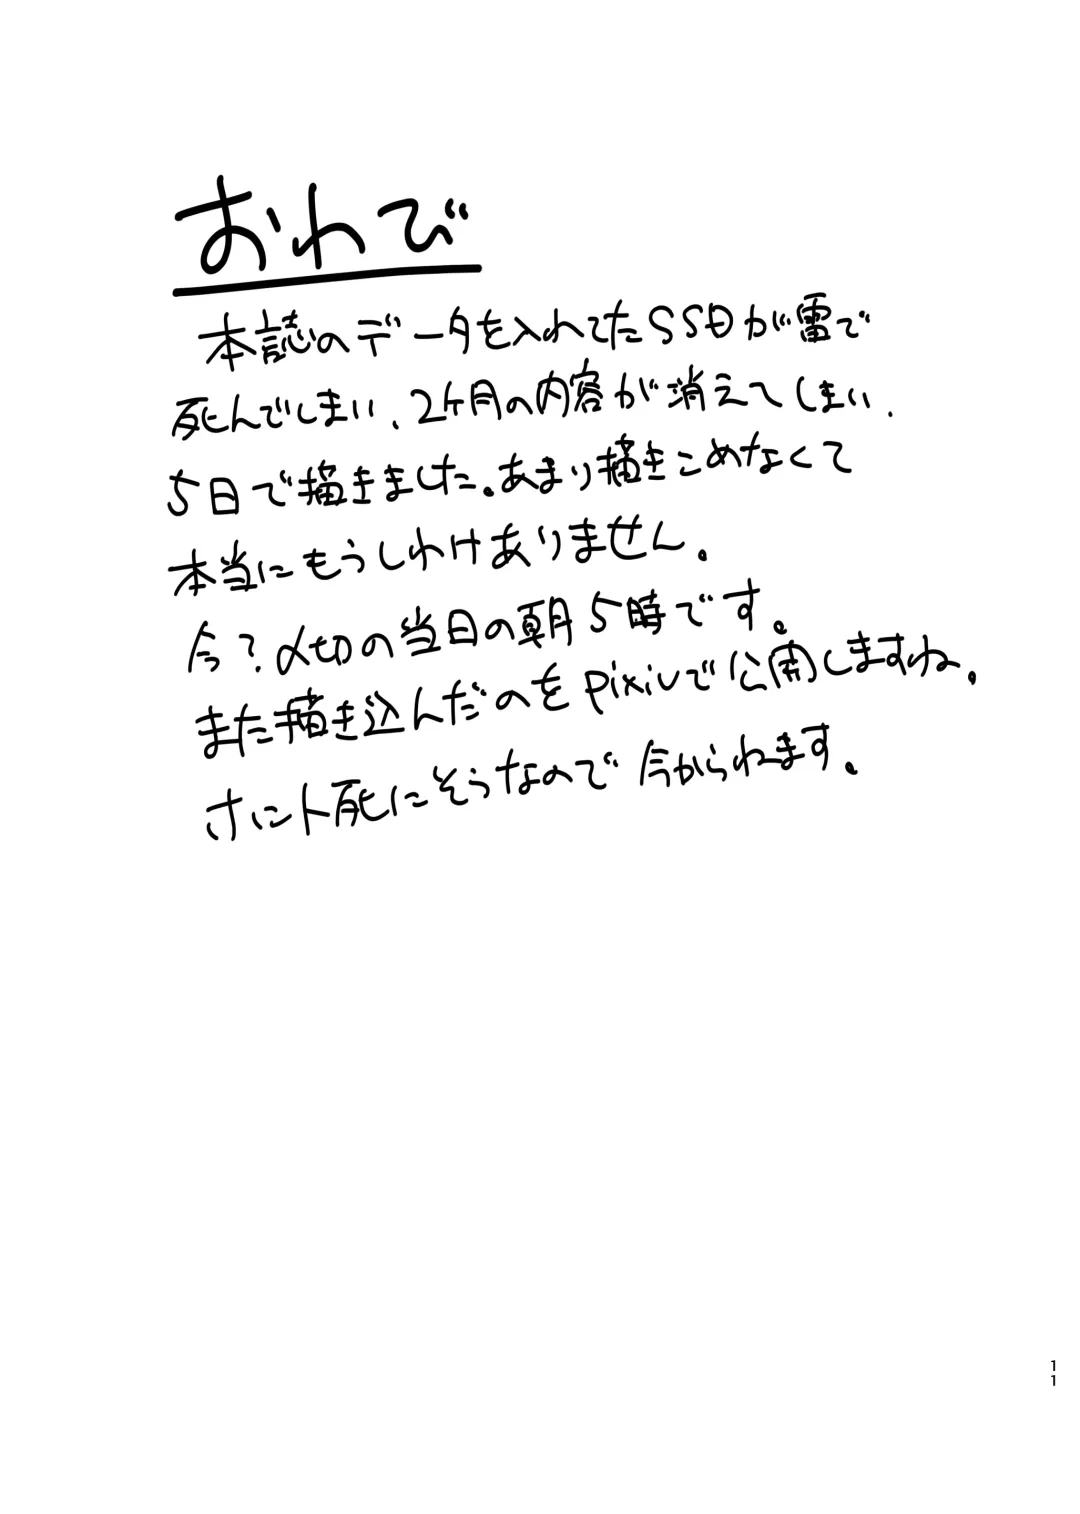 おわび
本誌のデータを入れてたSSDが雷で
死んでしまい、2ヶ月の内容が消えてしまい、
5日で描きました。あまり描きこめなくて
本当にもうしわけありません。
今?〆切の当日の朝5時です。
また描き込んだのをpixivで公開しますね。
死にそうなので今からねます。
11